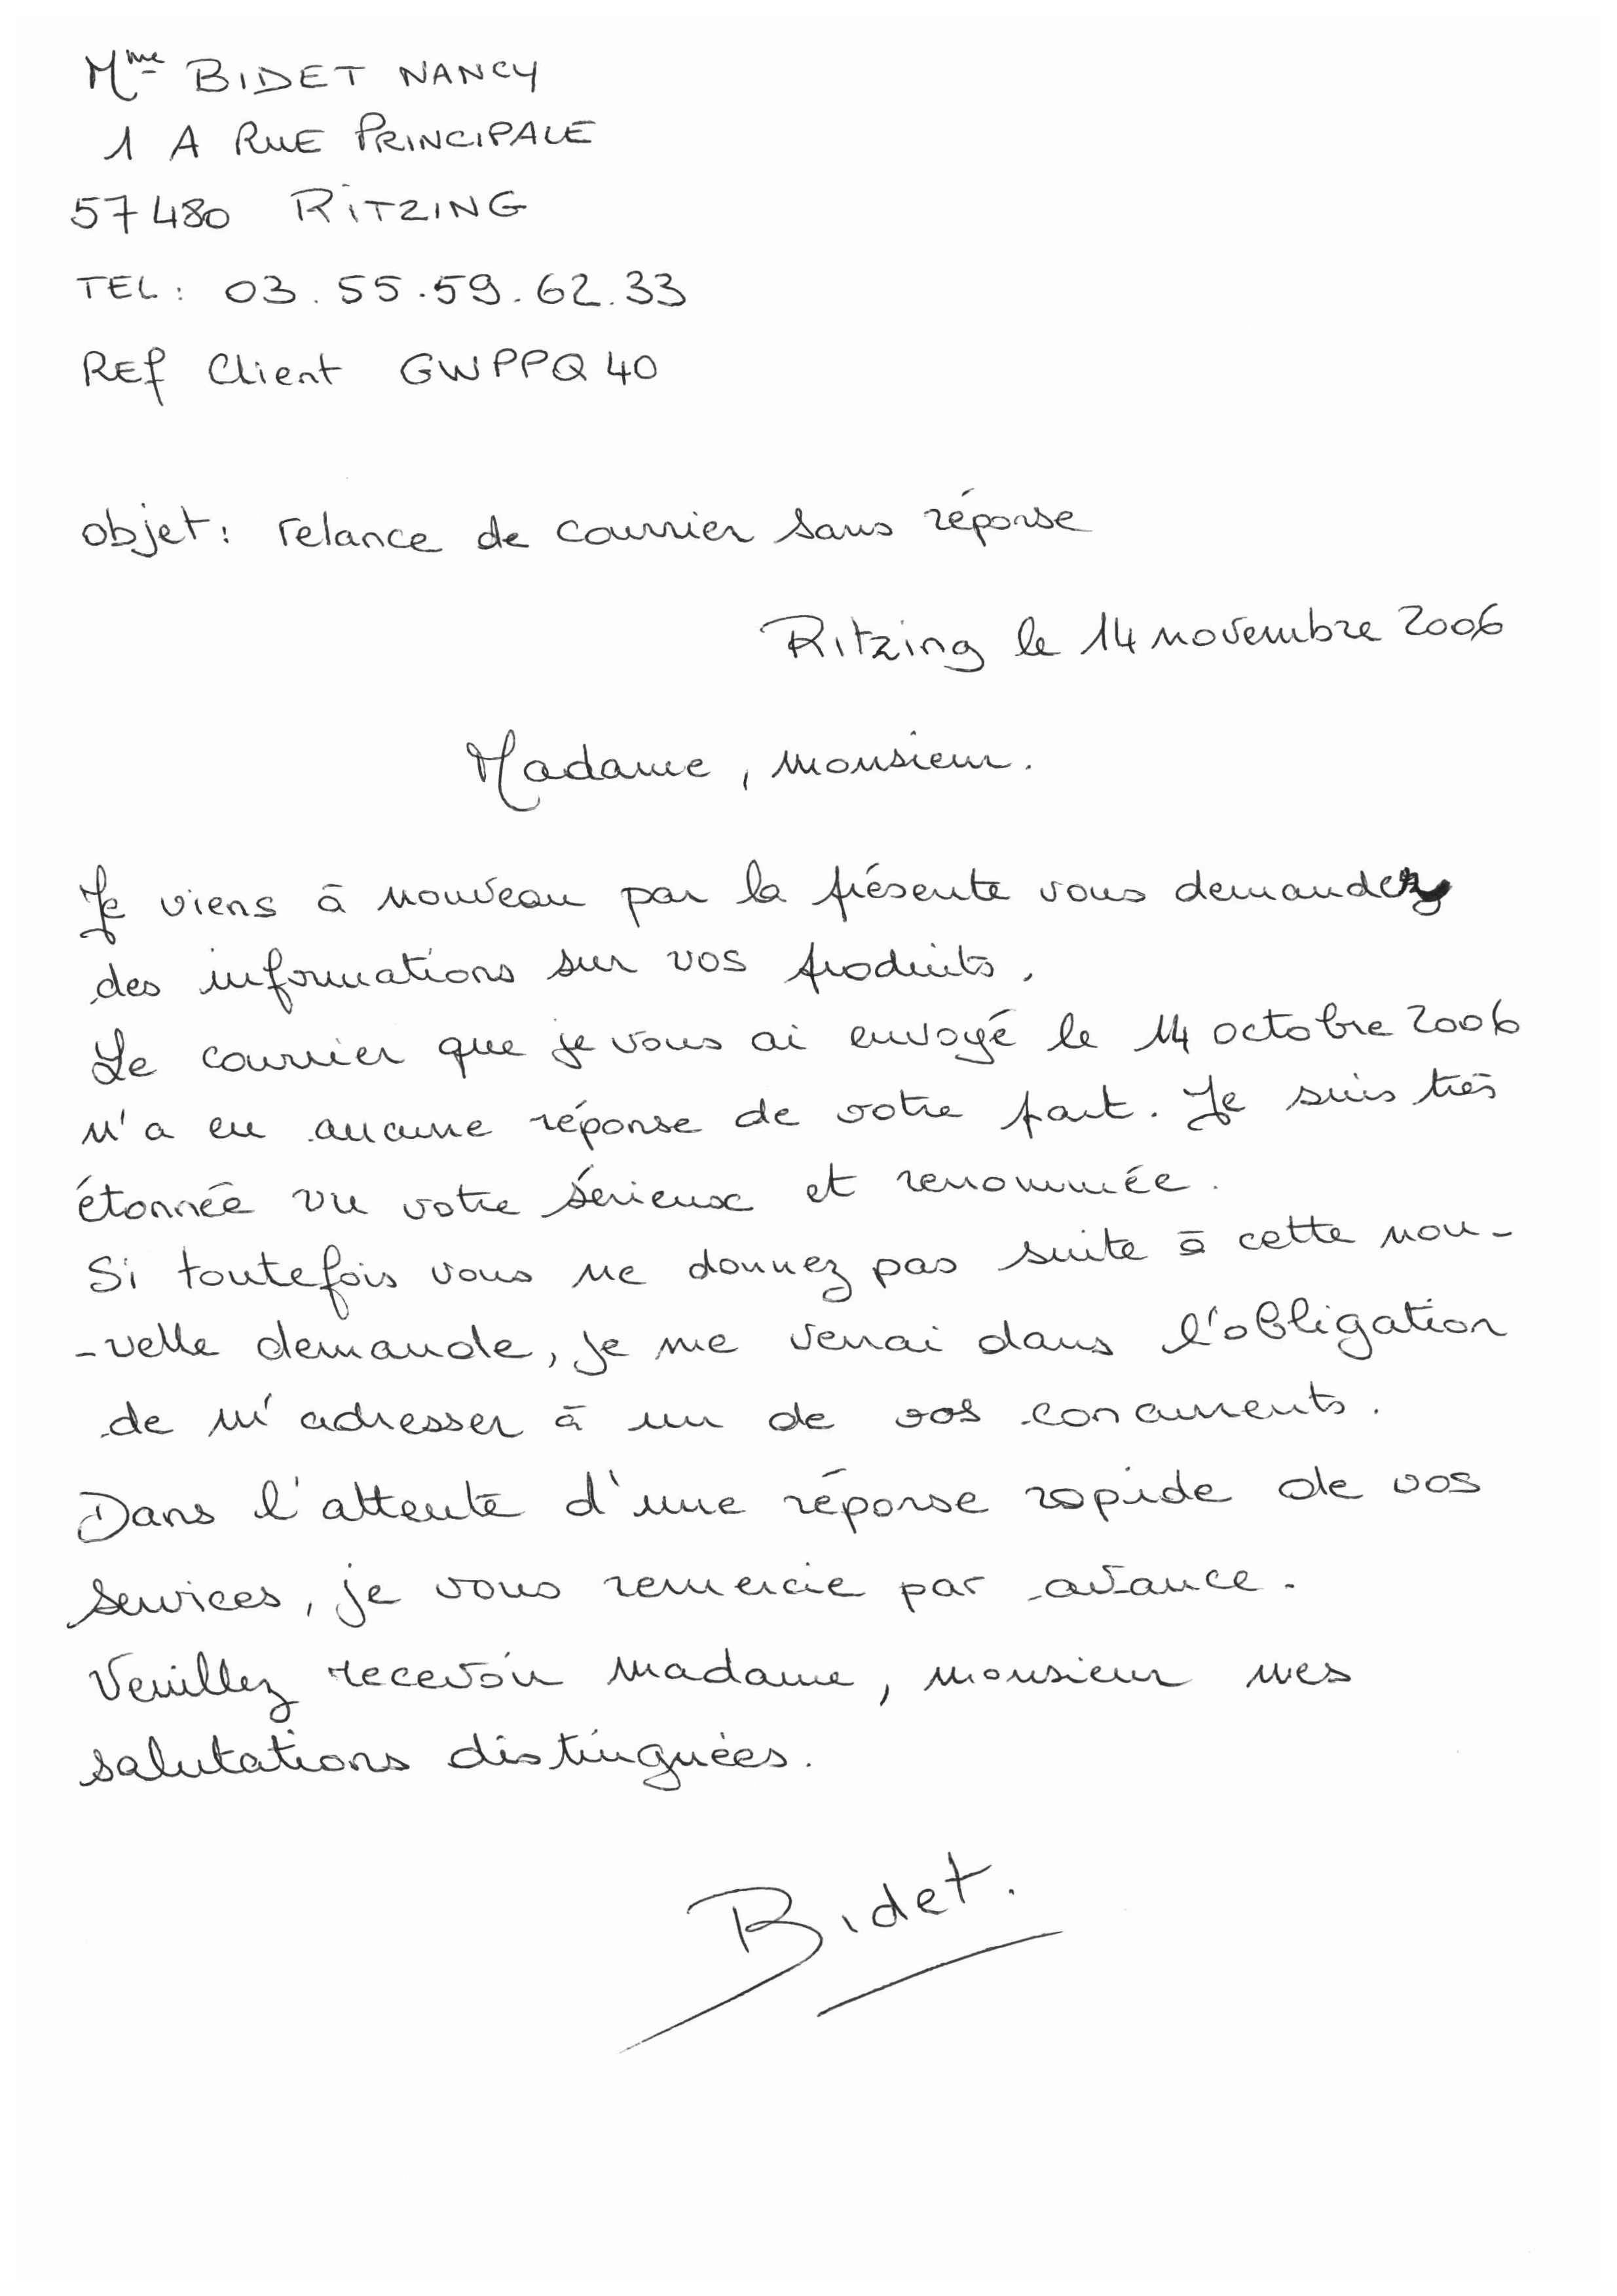 Mme BIDET NANCY
1 A RUE PRINCIPALE
57480 RITZING
TEL: 03.55.59.62.33
REf Client GWPPQ40
objet: relance de courrier sans réponse
Ritzing le 14 novembre 2006
Madame, monsieur.
Je viens à nouveau par la présente vous demander
des informations sur vos produits.
Le courrier que je vous ai envoyé le 14 octobre 2006
n'a eu aucune réponse de votre part. Je suis très
étonnée vu votre sérieux et renommée.
Si toutefois vous ne donnez pas suite à cette nou-
-velle demande, je me verrai dans l'obligation
de m'adresser à un de vos concurrents.
Dans l'attente d'une réponse rapide de vos
services, je vous remercie par avance.
Veuillez recevoir madame, monsieur mes
salutations distinguées.
Bidet.